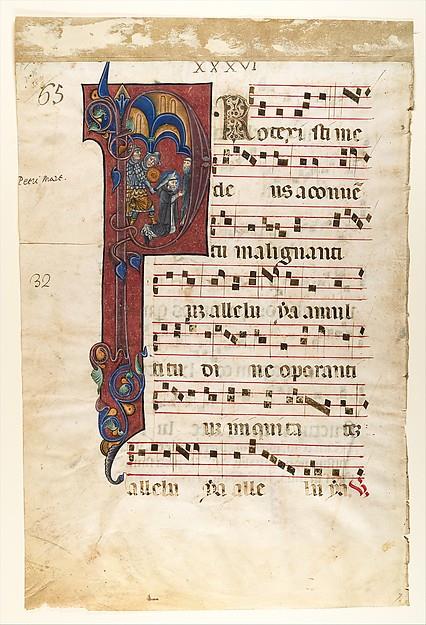 XXXVI
65
Petri Mart.
32
PRotexi sti me
de us a conuē
tu malignanti
uz allelu ya a mul
titu di ne operanti
uz iniquita tez
allelu ya alle lu ya